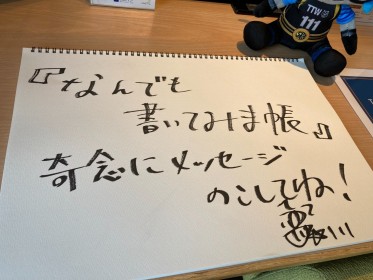 TTW
111
『なんでも
書いてみま帳』
奇念にメッセージ
のこしてね！